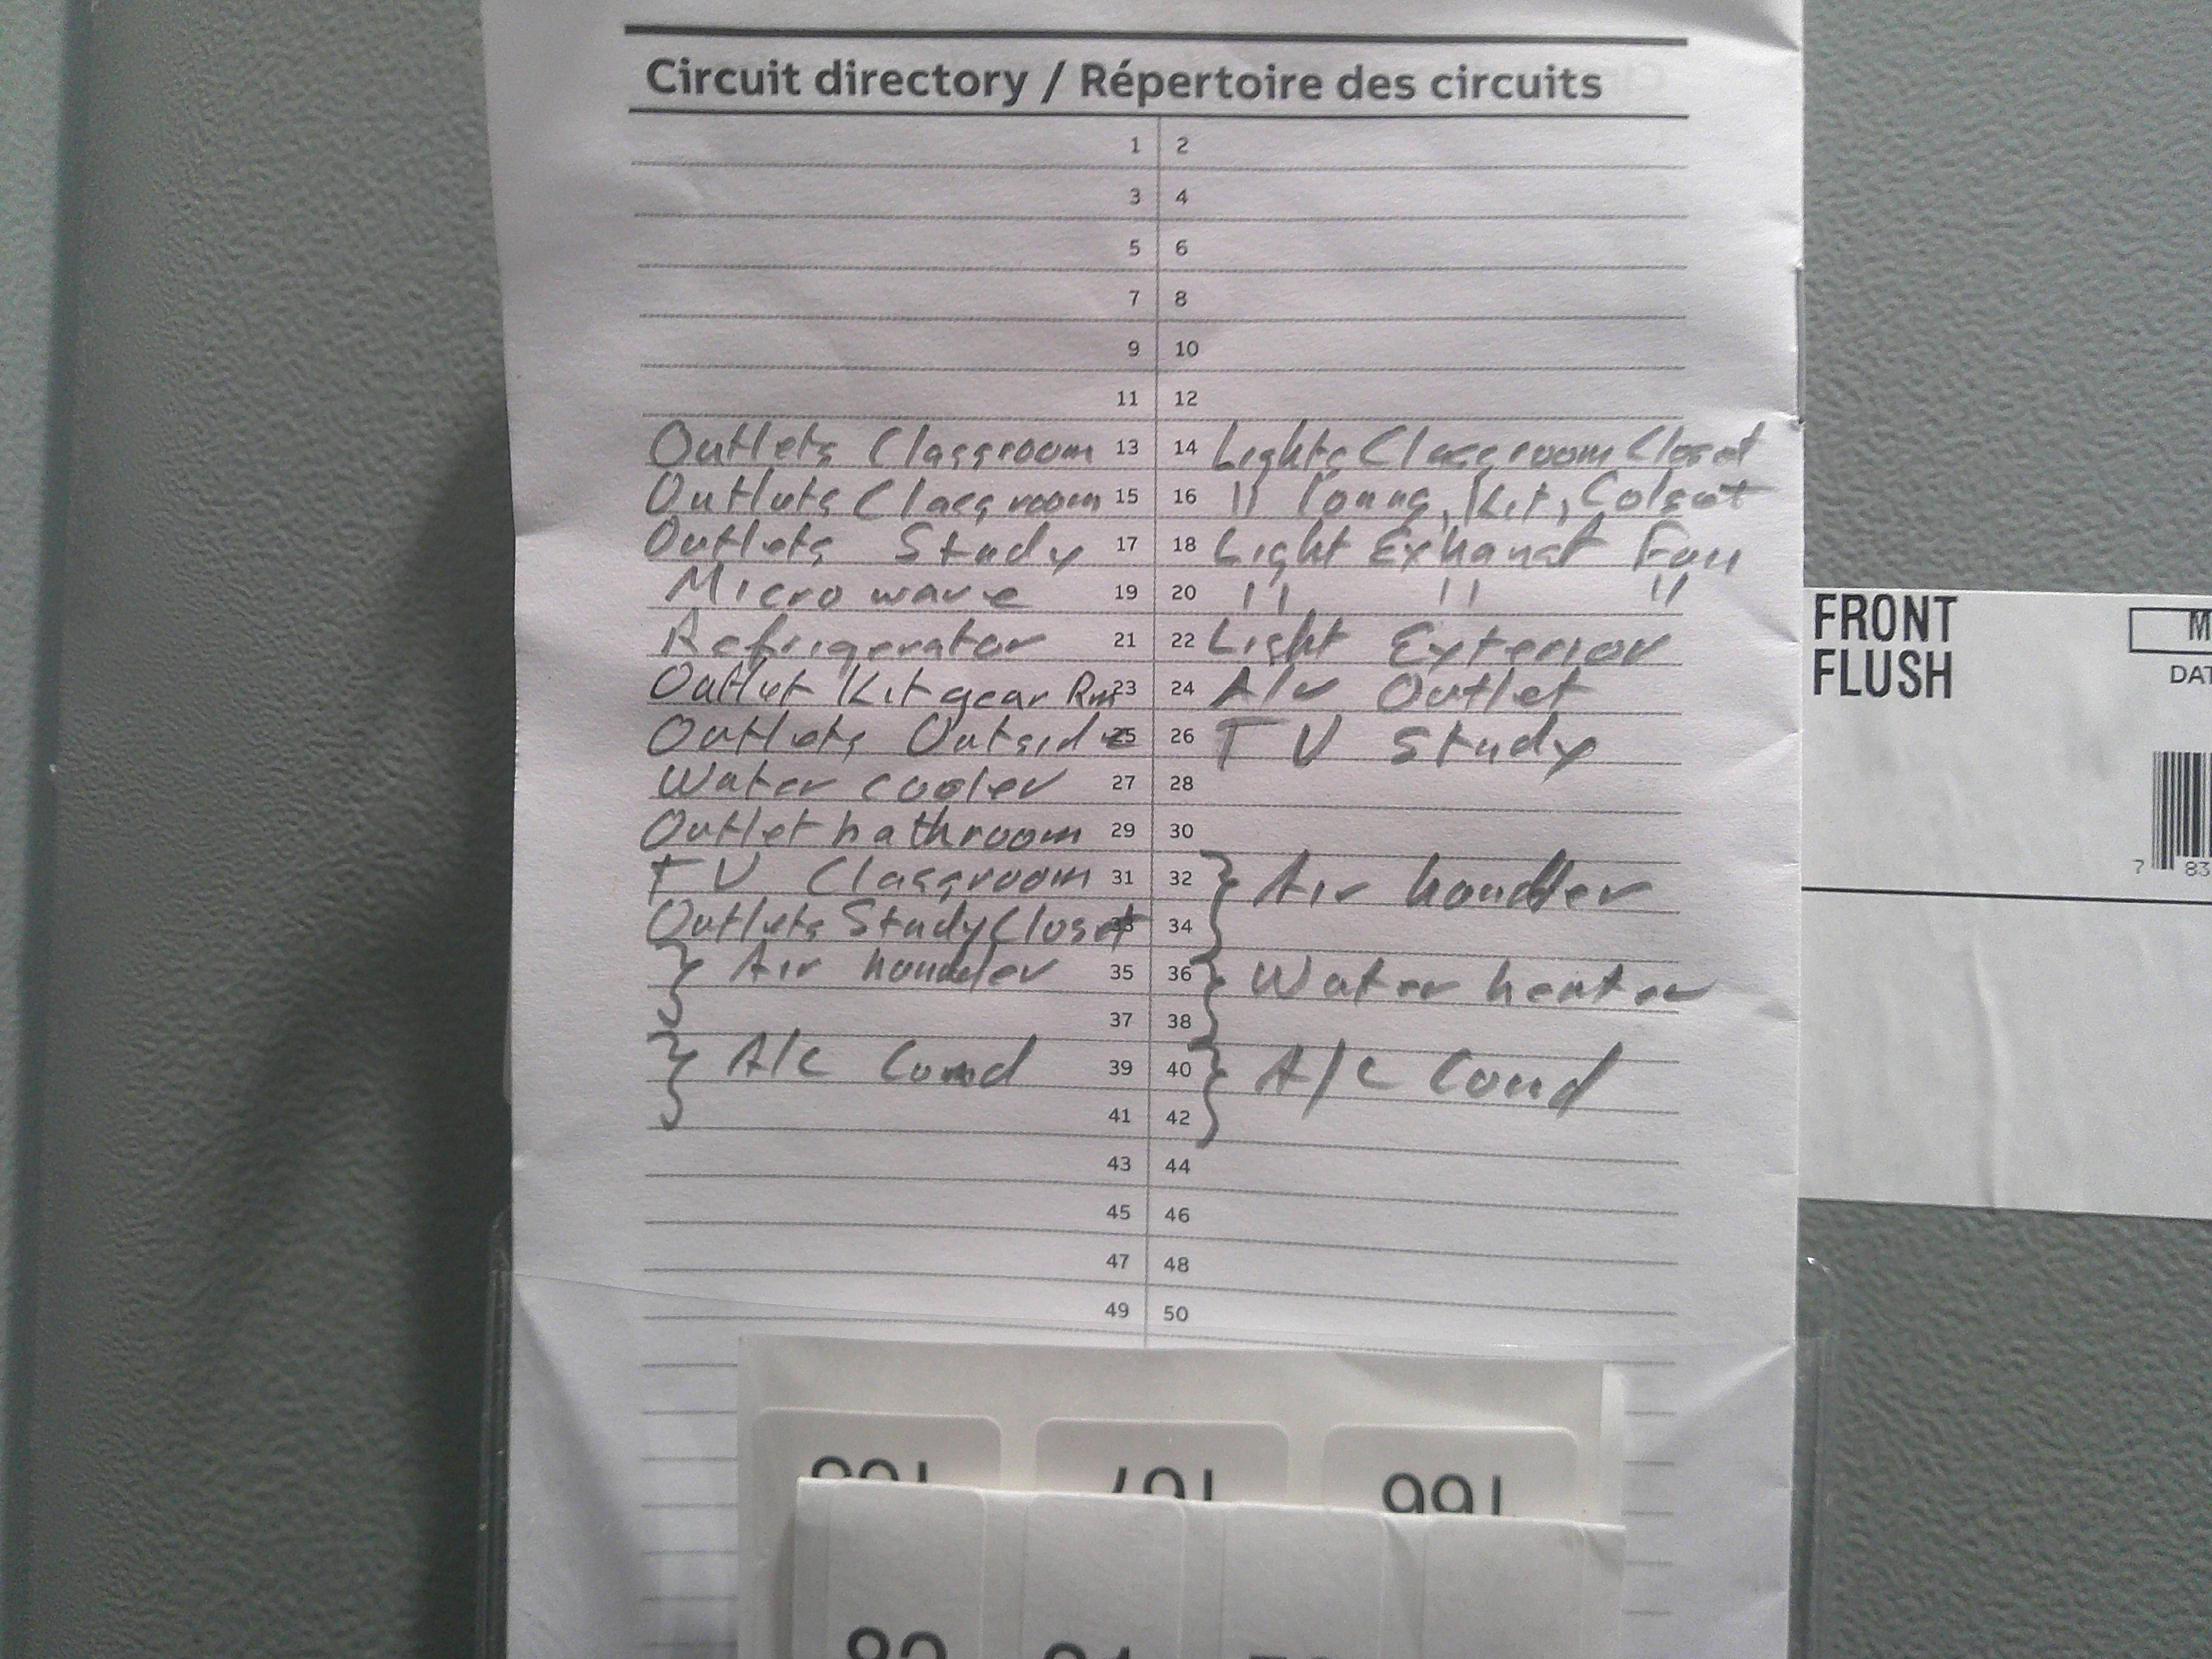 Circuit directory / Répertoire des circuits
1 2
3 4
5 6
7 8
9 10
11 12
Outlets Classroom 13 14 Lights Classroom Closet
Outlets Classroom 15 16 " Kit, Colset
Outlets Study 17 18 Light Exhaust Fan
Microwave 19 20 " " "
Refrigerator 21 22 Light Exterior
Outlet Kit gear Rm 23 24 Outlet
Outlets Outside 25 26 TV Study
Water cooler 27 28
Outlet bathroom 29 30
TV Classroom 31 32 Air handler
Outlets Study Closet 33 34
Air handler 35 36 Water heater
37 38
A/C Cond 39 40 A/C Cond
41 42
43 44
45 46
47 48
49 50
FRONT
FLUSH
7 83
166